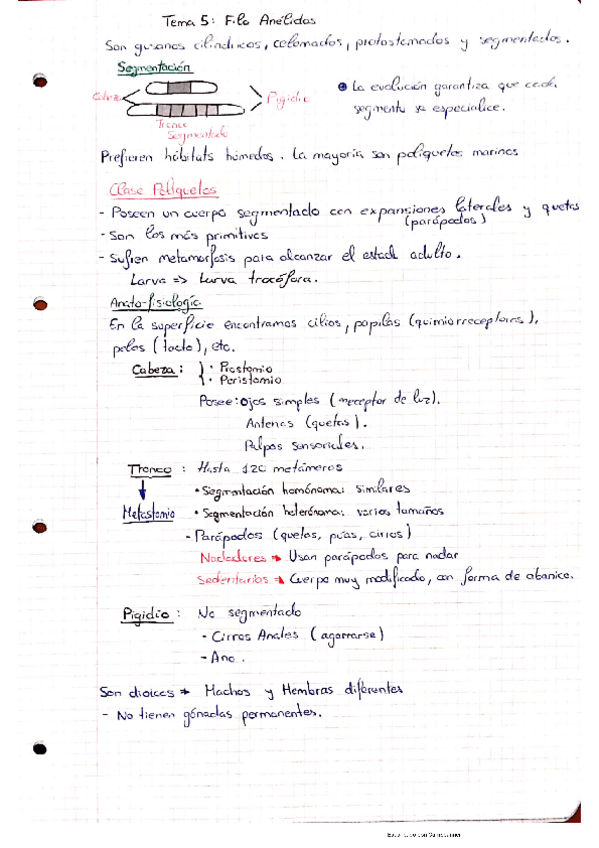 Tema 5: Filo Anélidos
Son gusanos cilíndricos, celomados, protostomados y segmentados.
Segmentación
Cabeza
Pigidio
Tronco
Segmentado
La evolución garantiza que cada
segmento se especialice.
Prefieren hábitats húmedos. La mayoría son poliquetos marinos
Clase Poliquetos
- Poseen un cuerpo segmentado con expansiones laterales y quetas
(parápodos)
- Son los más primitivos
- Sufren metamorfosis para alcanzar el estado adulto.
Larva => Larva trocófora.
Anato-fisiología
En la superficie encontramos cilios, papilas (quimiorreceptores),
pelos (tacto), etc.
Cabeza: } · Prostomio
· Peristomio
Posee: ojos simples (receptor de luz).
Antenas (quetas).
Palpos sensoriales.
Tronco : Hasta 120 metámeros
· Segmentación homónoma: similares
Metastomio · Segmentación heterónoma: varios tamaños
- Parápodos (quetas, púas, cirros)
Nadadores → Usan parápodos para nadar
Sedentarios → Cuerpo muy modificado, con forma de abanico.
Pigidio : No segmentado
- Cirros Anales (agarrarse)
- Ano.
Son dioicos → Machos y Hembras diferentes
- No tienen gónadas permanentes.